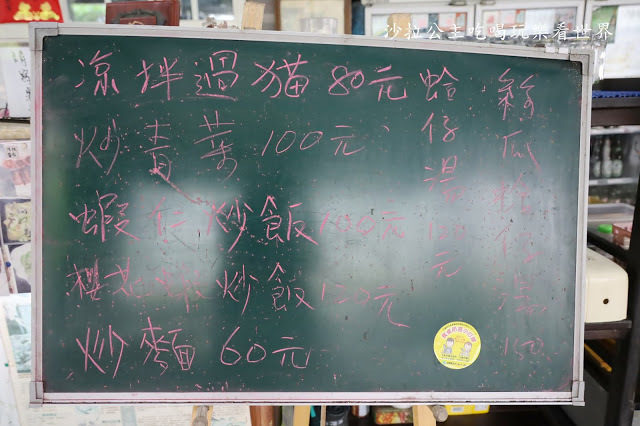 沙拉公主吃喝玩樂看世界
涼拌過猫 80元
炒青菜 100元
蝦仁炒飯 100元
櫻花蝦炒飯 120元
炒麵 60元
蛤仔湯 120元
絲瓜蛤仔湯 150